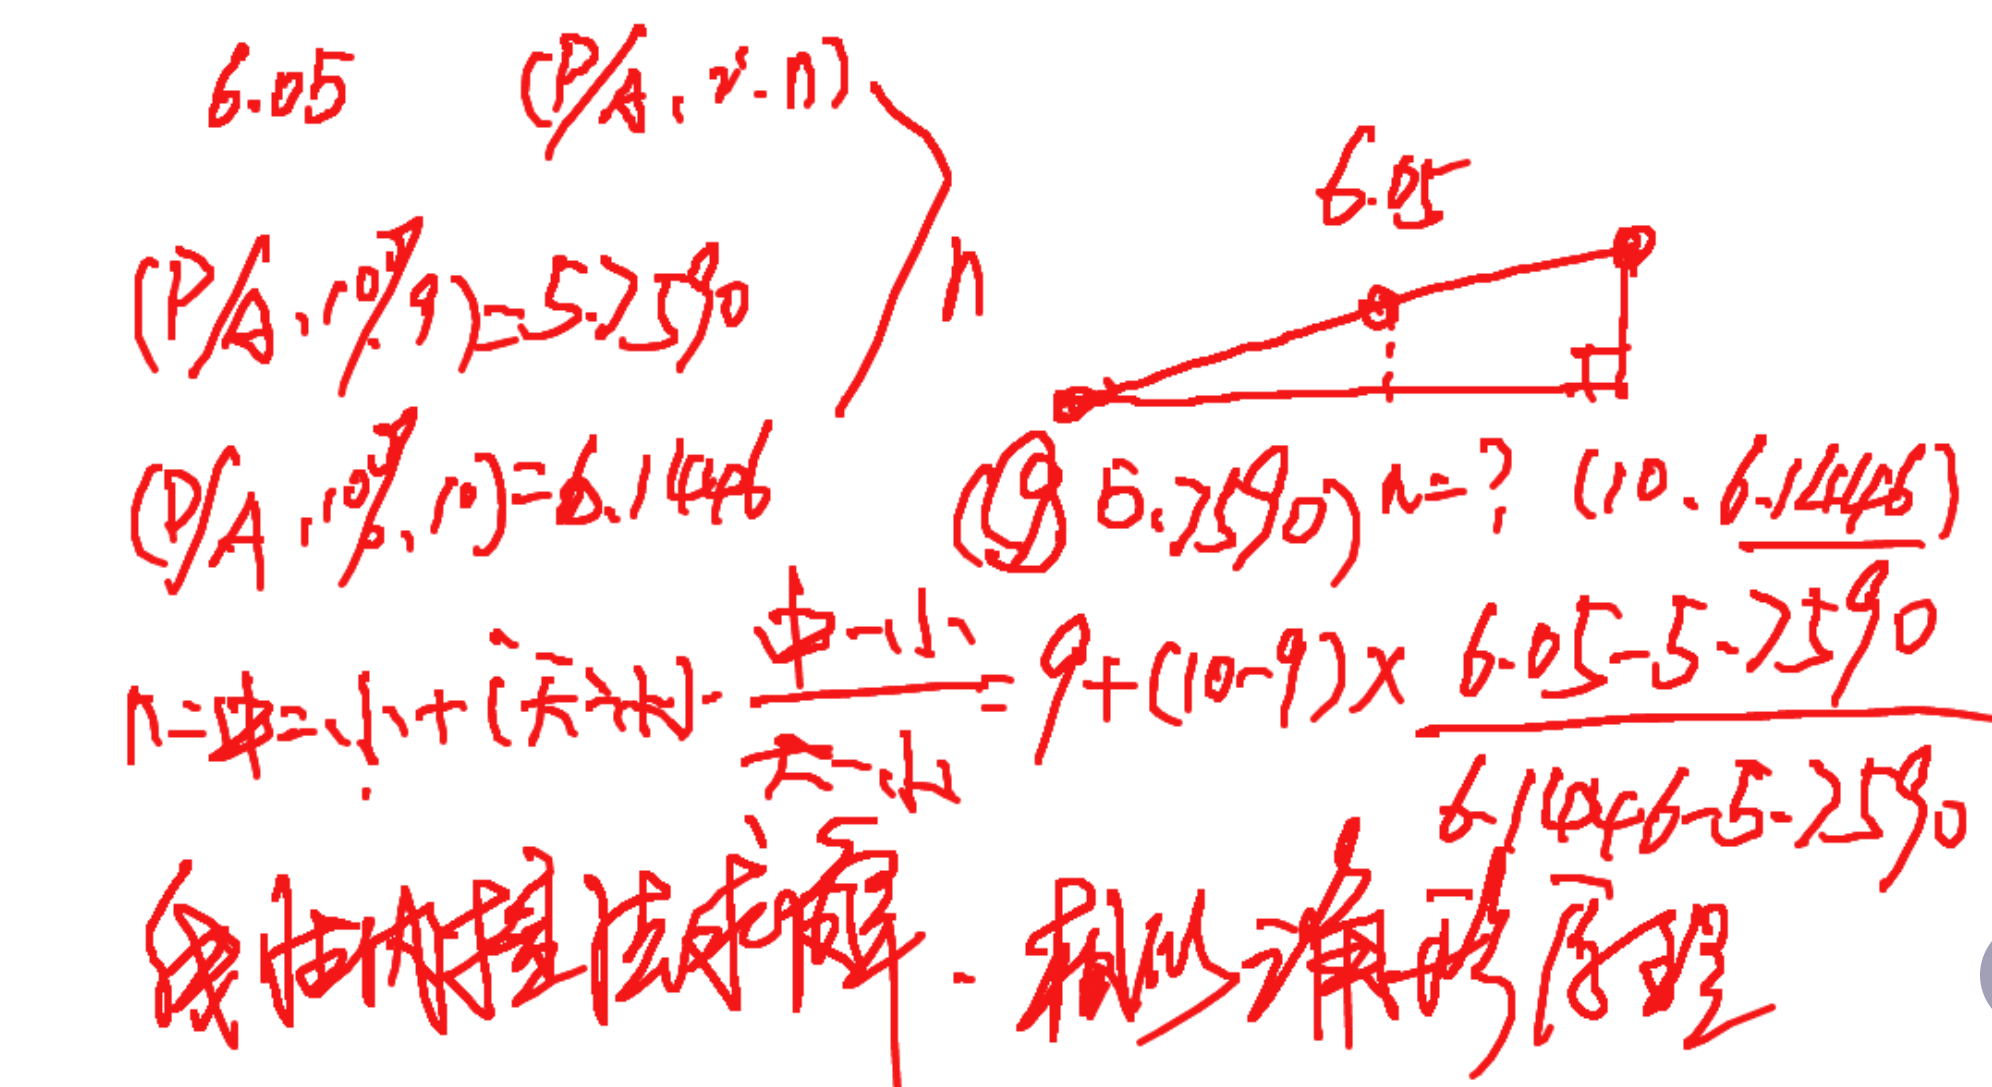 6.05 (P/A, i, n)
n
6.05
(P/A, 10%, 9) = 5.7590
(P/A, 10%, 10) = 6.1446
(9 5.7590) n=? (10, 6.1446)
n=中=小+(大-小)·(中-小)/(大-小)=9+(10-9)×(6.05-5.7590)/(6.1446-5.7590)
线性内插法求解, 相似三角形原理